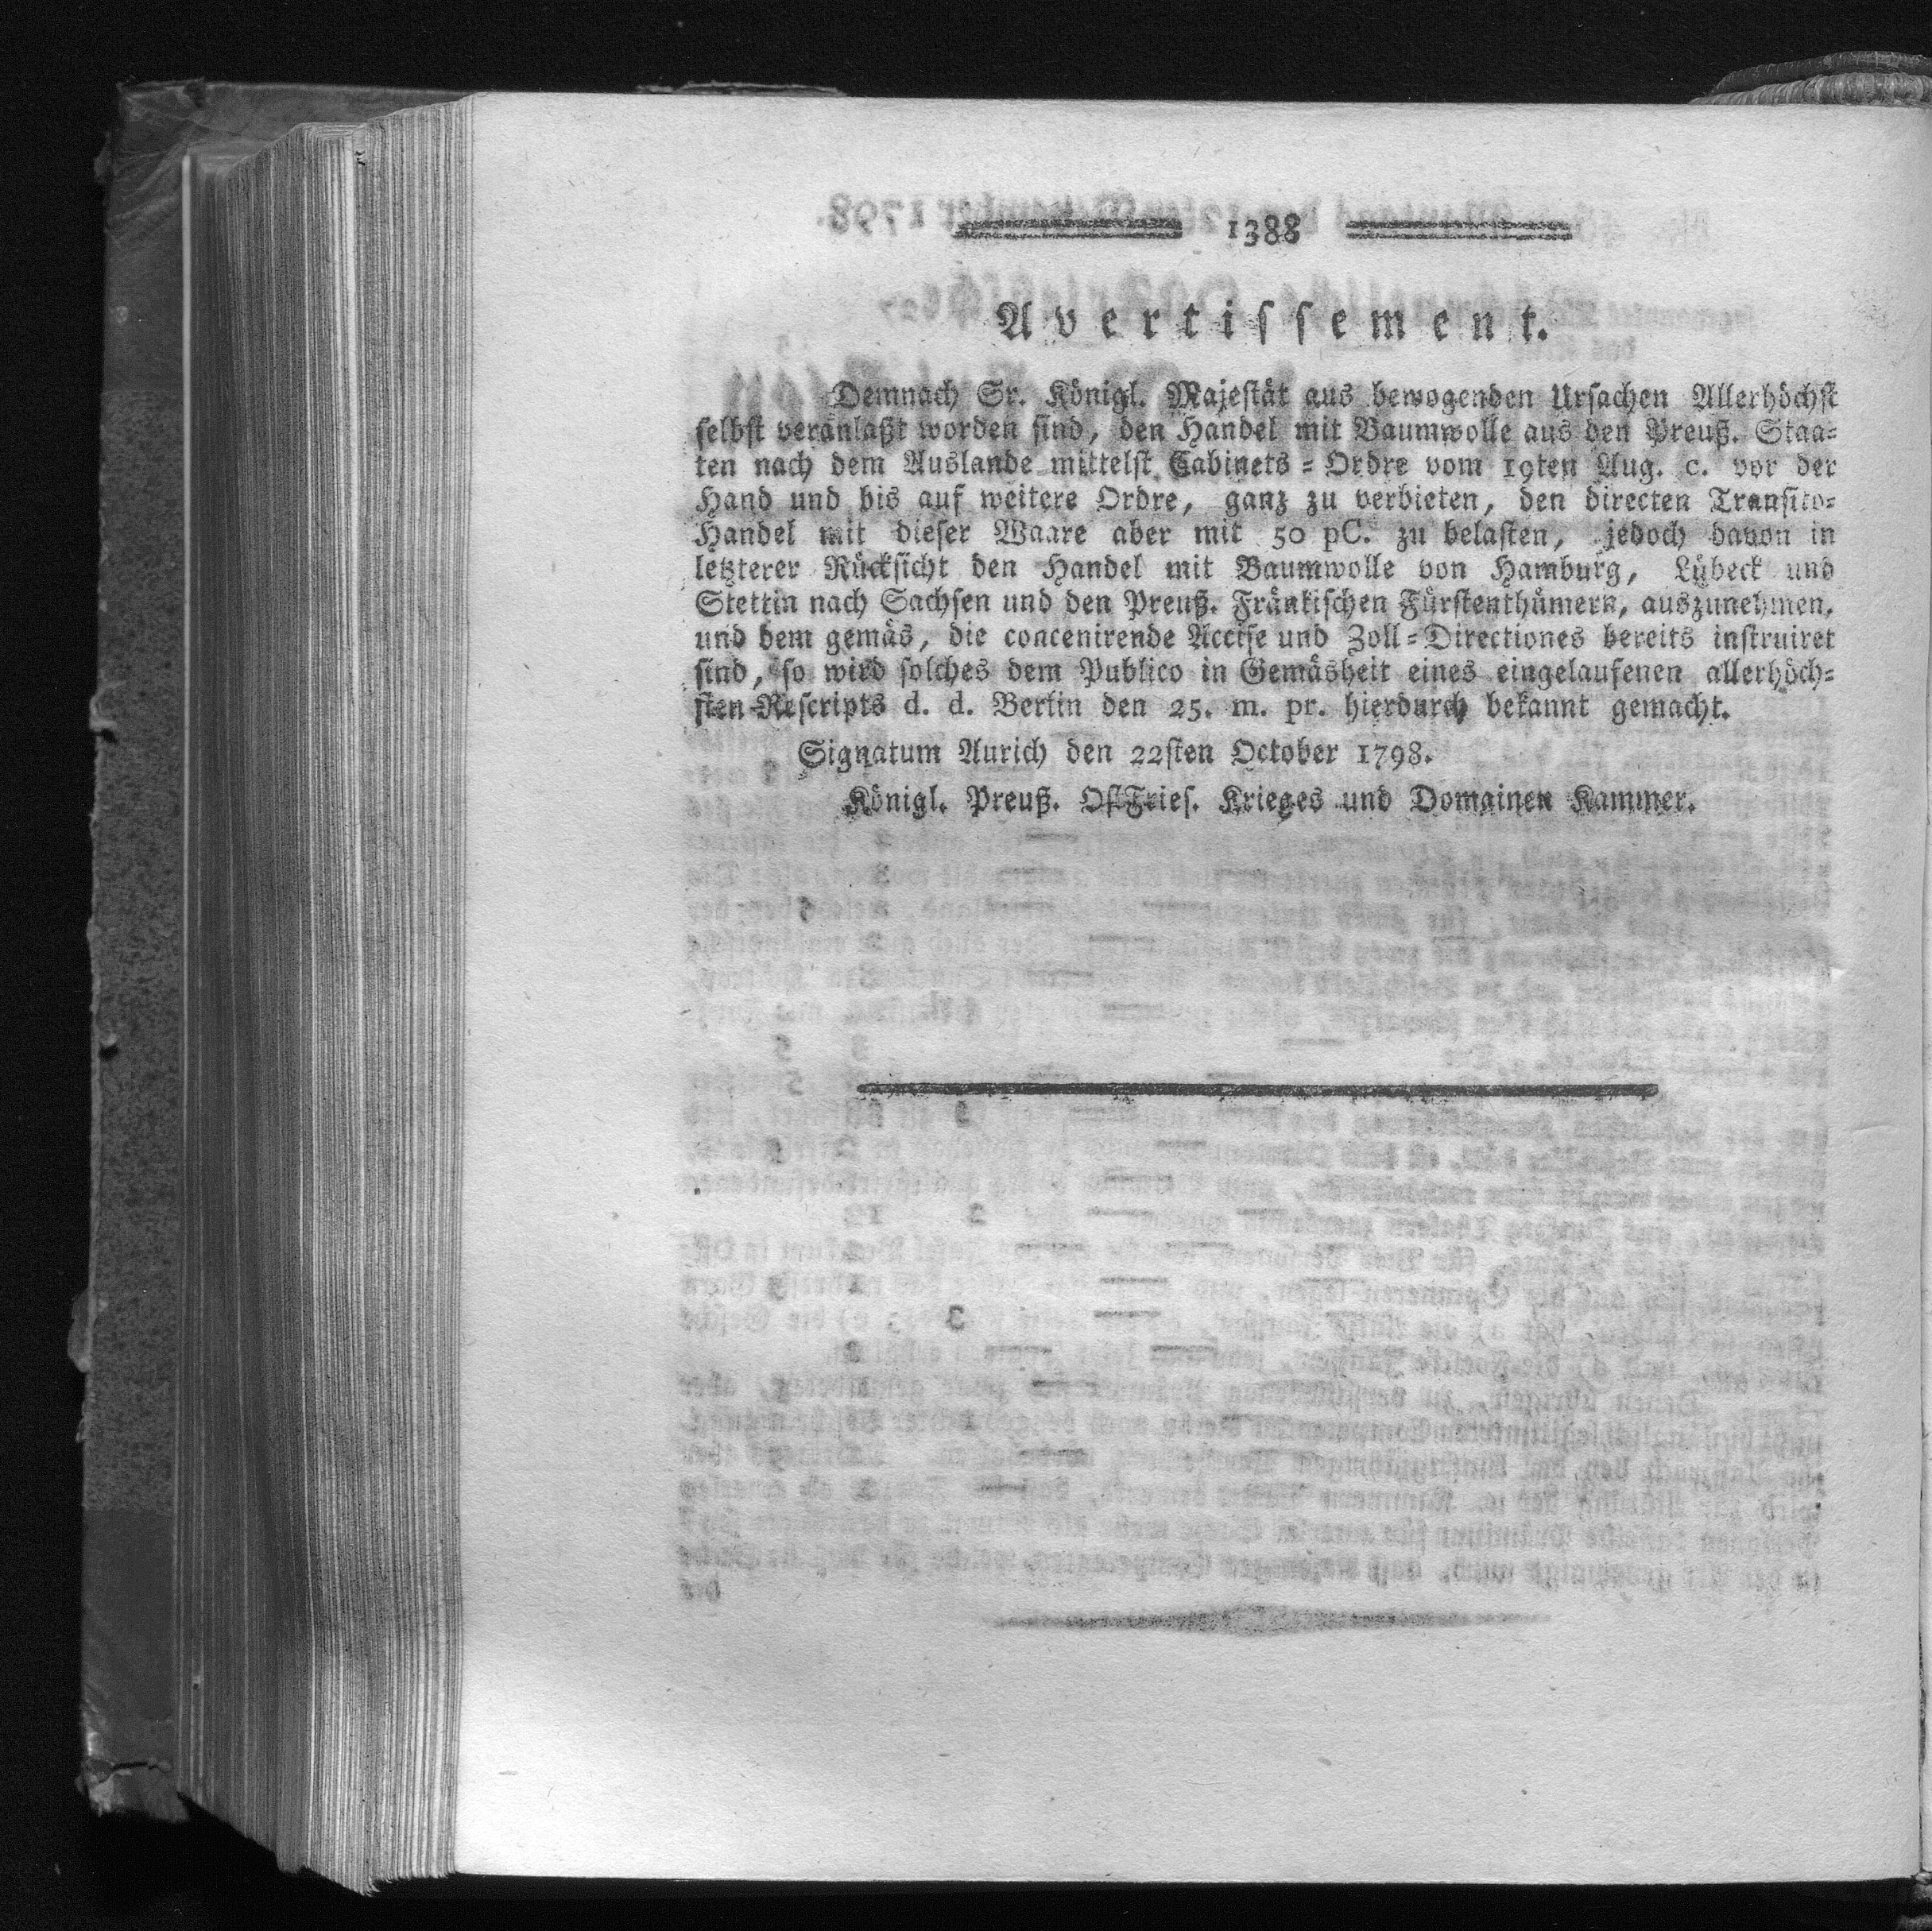 1388
Avertissement.
Demnach Sr. Königl. Majestät aus bewogenden Ursachen Allerhöchst
selbst veranlaßt worden sind, den Handel mit Baumwolle aus den Preuß. Staa-
ten nach dem Auslande mittelst Cabinets-Ordre vom 19ten Aug. c. vor der
Hand und bis auf weitere Ordre, ganz zu verbieten, den directen Transito-
Handel mit dieser Waare aber mit 50 pC. zu belasten, jedoch davon in
letzterer Rücksicht den Handel mit Baumwolle von Hamburg, Lübeck und
Stettin nach Sachsen und den Preuß. Fränkischen Fürstenthümern, auszunehmen,
und dem gemäs, die concenirende Accise und Zoll-Directiones bereits instruiret
sind, so wird solches dem Publico in Gemäsheit eines eingelaufenen allerhöch-
sten Rescripts d. d. Berlin den 25. m. pr. hierdurch bekannt gemacht.
Signatum Aurich den 22sten October 1798.
Königl. Preuß. OstFries. Krieges und Domainen Kammer.